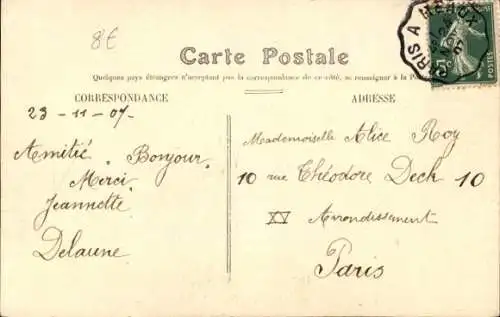 8€
Carte Postale
Quelques pays étrangers n'acceptant pas la correspondance de ce côté, se renseigner à la
CORRESPONDANCE
ADRESSE
PARIS A MEAUX
5c
23 - 11 - 07.
Amitié. Bonjour.
Merci
Jeannette.
Delaune
Mademoiselle Alice Roy
10 rue Théodore Deck 10
XV Arrondissement
Paris